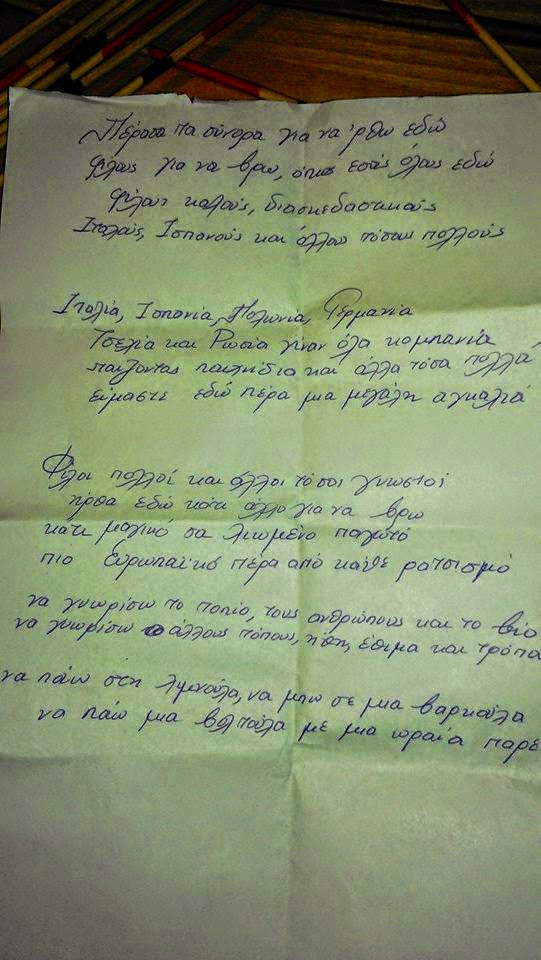 Πέρασα τα σύνορα για να 'ρθω εδώ
φίλους για να βρω, όπως εσάς όλους εδώ
φίλους καλούς, διασκεδαστικούς
Ιταλούς, Ισπανούς και άλλους τόσους πολλούς
Ιταλία, Ισπανία, Πολωνία, Γερμανία
Τσεχία και Ρωσία γίναν όλα κομπανία
παίζοντας παιχνίδια και άλλα τόσα πολλά
είμαστε εδώ πέρα μια μεγάλη αγκαλιά
Φίλοι πολλοί και άλλοι τόσοι γνωστοί
ήρθα εδώ κάτι άλλο για να βρω
κάτι μαγικό σα λιωμένο παγωτό
πιο Ευρωπαϊκό πέρα από κάθε ρατσισμό
να γνωρίσω το τοπίο, τους ανθρώπους και το βίο
να γνωρίσω άλλους τόπους, ήθη, έθιμα και τρόπο
να πάω στη λιμνούλα, να μπω σε μια βαρκούλα
να πάω μια βολτούλα με μια ωραία παρέ